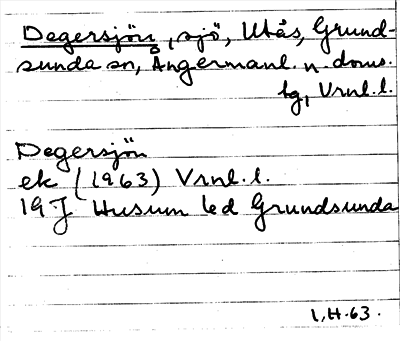 Degersjön, sjö, Utås, Grund-
sunda sn, Ångermanl. n. doms.
lg, Vrnl. l.
Degersjön
ek (1963) Vrnl. l.
19J Husum led Grundsunda
I.H.63.